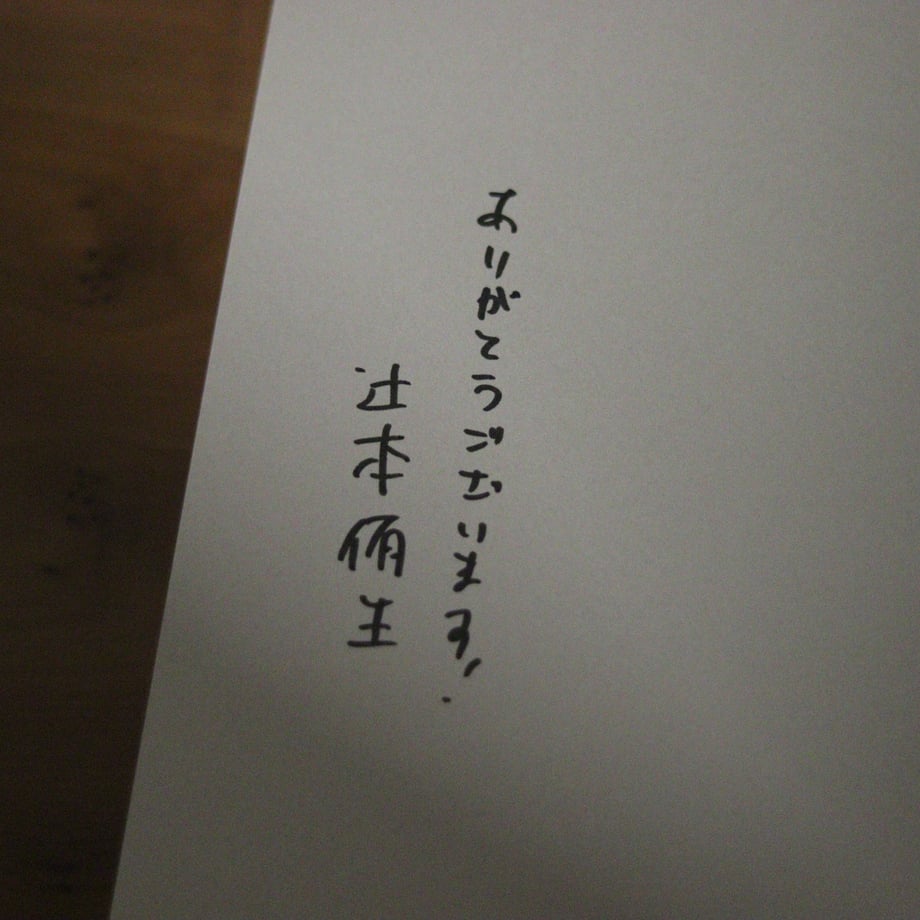 ありがとうございます!
辻本侑生